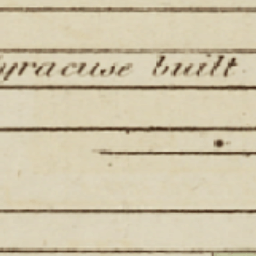 Syracuse built